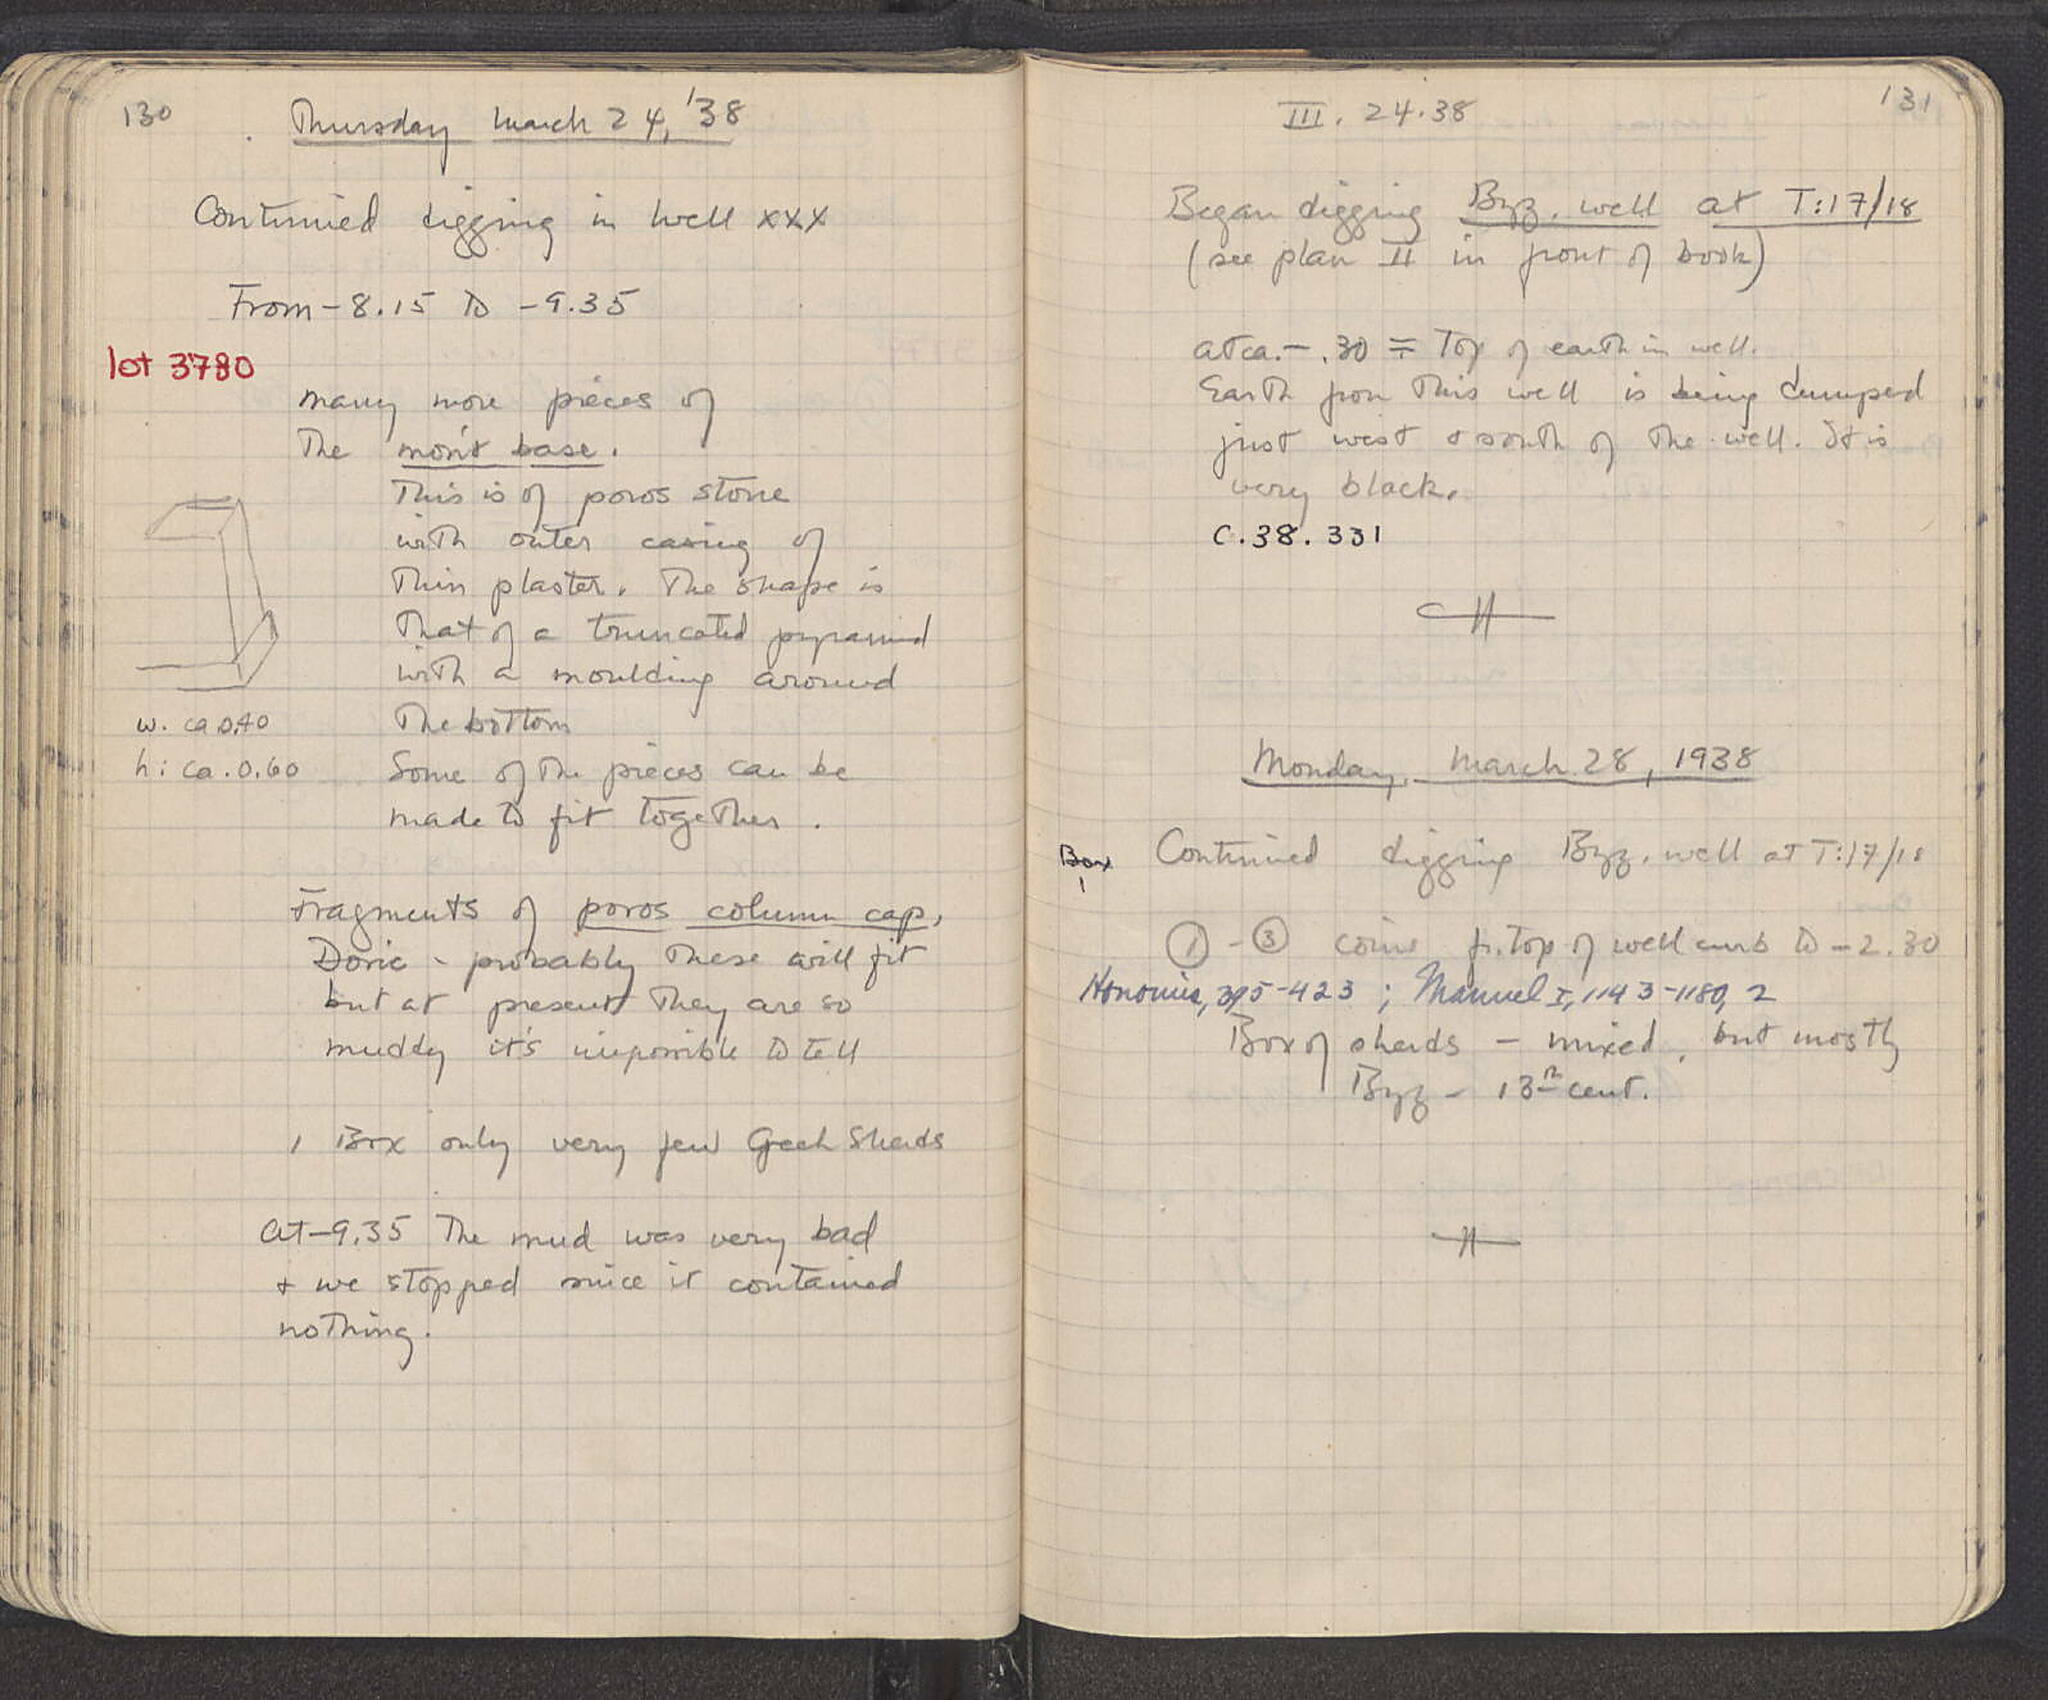 130
Thursday March 24, '38
Continued digging in well XXX
From -8.15 to -9.35
lot 3780
many more pieces of
the mon't base.
This is of poros stone
with outer casing of
thin plaster. The shape is
that of a truncated pyramid
with a moulding around
the bottom
w. ca 0.40
h: ca. 0.60
Some of the pieces can be
made to fit together.
Fragments of poros column cap,
Doric - probably these will fit
but at present they are so
muddy it's impossible to tell
1 Box only very few Greek Sherds
At -9.35 the mud was very bad
+ we stopped since it contained
nothing.
131
III. 24.38
Began digging Byz. well at T:17/18
(see plan II in front of book)
at ca. -.30 = Top of earth in well.
Earth from this well is being dumped
just west & south of the well. It is
very black.
C.38.331
Monday, March 28, 1938
Box
1
Continued digging Byz. well at T:17/18
① - ③ coins fr. top of well curb to -2.30
Honorius, 395-423 ; Manuel I, 1143-1180, 2
Box of sherds - mixed, but mostly
Byz - 13th cent.